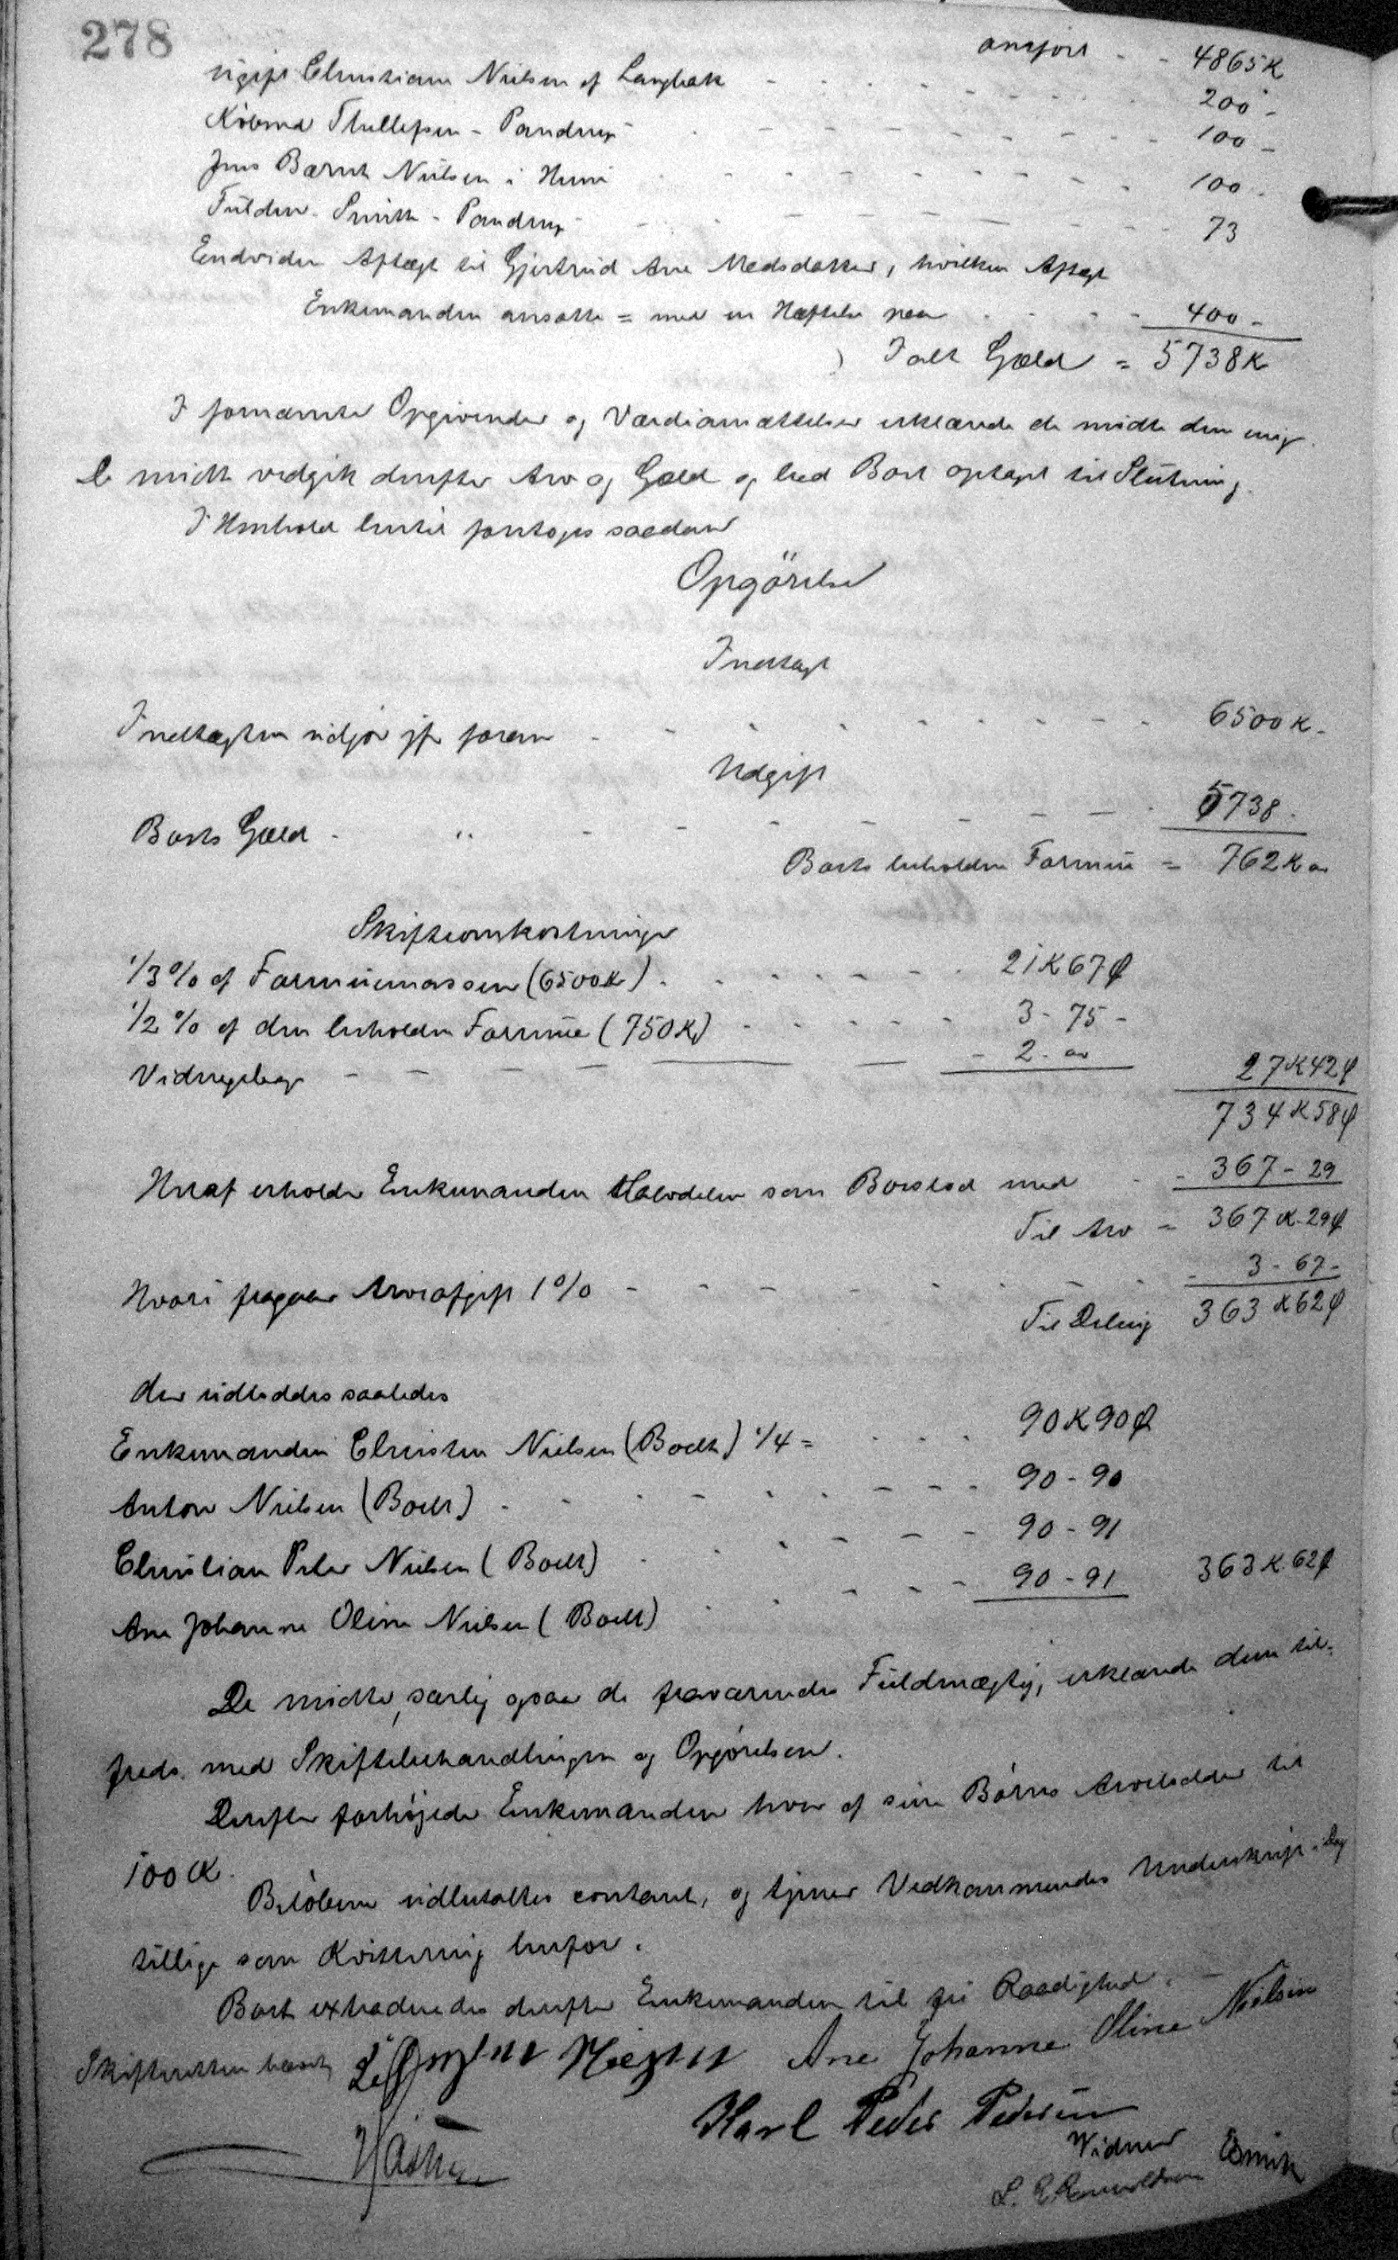 278
anført - - 4865 K
ugift Christiane Nielsen af Langbak - - - 200 -
Kjøbmd Thellefsen - Pandrup - - - 100 -
Jens Bærent Nielsen i Hune - - - 100 -
Smith - Pandrup - - - 73
Endvidere Aftægt til Gjertrud Ane Madsdatter, hvilken Aftægt
Enkemanden ansatte = med en Hæftelse paa - - - 400 -
Ialt Gæld = 5738 K
I fornævnte Opgivender og Værdiansættelser erklærede de mødte dem enig.
De mødte vedgik derefter Arv og Gæld og lod Boet optaget til Slutning.
I Henhold hertil foretoges saadan
Opgörelse
Indtægt
Indtægten udgjør jfr foran - - - 6500 K -
Udgift
Boets Gæld - - - 5738 -
Boets beholdne Formue = 762 K oo
Skifteomkostninger
1/3 % af Formuemassen (6500 K) - - - 21 K 67 Ø
1/2 % af den beholdne Formue (750 K) - - - 3 - 75 -
Vidnegebyr - - - 2 - oo
27 K 42 Ø
734 K 58 Ø
Heraf erholder Enkemanden Halvdelen som Boeslod med - 367 - 29
Til Arv = 367 K 29 Ø
Hvori fragaar Arveafgift 1 % - - - 3 - 67 -
Til Deling 363 K 62 Ø
der udloddes saaledes
Enkemanden Christen Nielsen (Boelt) 1/4 = - - - 90 K 90 Ø
Anton Nielsen (Boelt) - - - 90 - 90
Christian Peter Nielsen (Boelt) - - - 90 - 91
Ane Johanne Oline Nielsen (Boelt) - - - 90 - 91 363 K 62 Ø
De mødte, særlig ogsaa de fraværendes Fuldmægtig, erklærede dem til-
freds med Skiftebehandlingen og Opgørelsen.
Derefter forhøjede Enkemanden hver af sine Børns Arvelodder til
100 K.
Beløbene udbetaltes contant, og tjener Vedkommendes Underskrift i Dag
tillige som Kvittering herfor.
Boet extraderedes derefter Enkemanden til fri Raadighed.
Skifteretten hævet
Nielsen Ane Johanne Oline Nielsen
Karl Peder Pedersen
Vidner